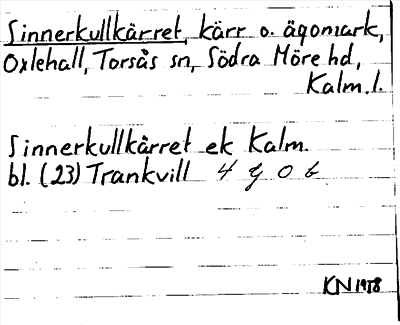 Sinnerkullkärret, kärr o. ägomark,
Oxlehall, Torsås sn, Södra Möre hd,
Kalm. l.
Sinnerkullkärret ek Kalm.
bl. (23) Trankvill 4 G 0 b
KN 1978